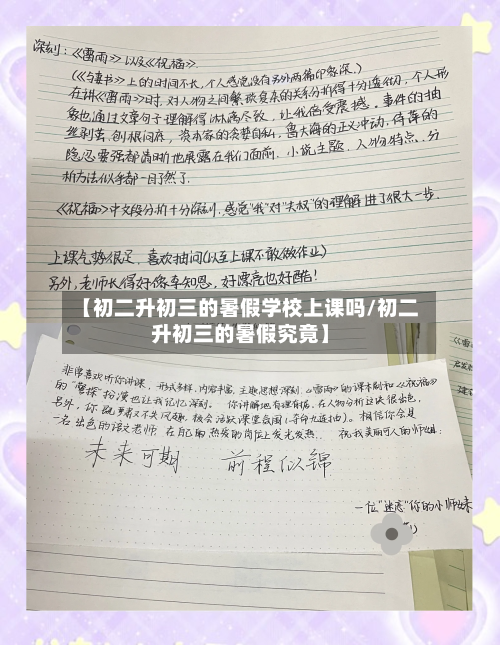 深刻：《雷雨》以及《祝福》.
(《与妻书》上的时间不长,个人感觉没有另外两篇印象深.)
在讲《雷雨》时.对人物之间繁琐复杂的关系分析得十分透彻.个人形
象也通过文章句子理解得淋漓尽致.让我倍受震撼.事件的抽
丝剥茧.刨根问底,资本家的贪婪自私,鲁大海的正义冲动.侍萍的
隐忍要强都清晰地展露在我们面前.小说主题.人物特点.分
析方法似乎都一目了然了.
《祝福》中文段分析十分深刻.感觉"我"对"夫权"的理解进了很大一步.
上课气势很足.喜欢抽问(以至上课不敢做作业)
另外,老师长得好像车知恩,好漂亮也好酷!
【初二升初三的暑假学校上课吗/初二
升初三的暑假究竟】
非常喜欢听你讲课.形式多样,内容丰富,主题思想深刻.《雷雨》的课本剧和《祝福》
的"警探"扮演也让我记忆深刻. 你讲解地有理有据.在人物分析这块很出色,
另外,你 又不失风趣.很会活跃课堂氛围(夺命九连抽).相信你会是
一名出色的语文老师 在自己的热爱的岗位上发光发热. 祝我美丽可人的师姐:
未来可期 前程似锦
一位"迷恋"你的小师妹